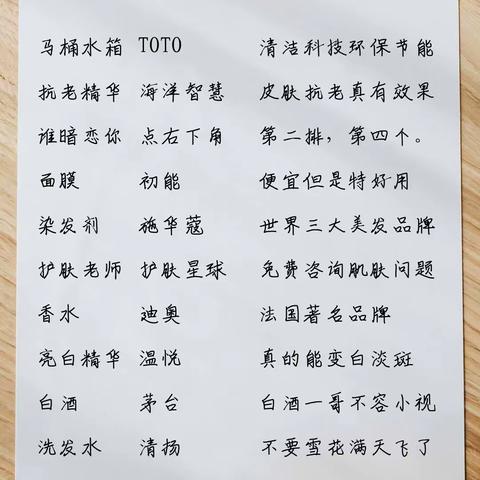 马桶水箱 TOTO 清洁科技环保节能
抗老精华 海洋智慧 皮肤抗老真有效果
谁暗恋你 点右下角 第二排，第四个。
面膜 初能 便宜但是特好用
染发剂 施华蔻 世界三大美发品牌
护肤老师 护肤星球 免费咨询肌肤问题
香水 迪奥 法国著名品牌
亮白精华 温悦 真的能变白淡斑
白酒 茅台 白酒一哥不容小视
洗发水 清扬 不要雪花满天飞了